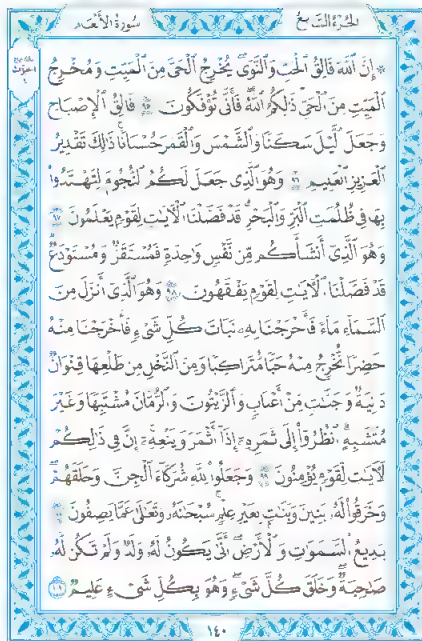 سُورَةُ الْأَنْعَامِ الجُزءُ السَّابِعُ
إِنَّ اللَّهَ فَالِقُ الْحَبِّ وَالنَّوَىٰ يُخْرِجُ الْحَيَّ مِنَ الْمَيِّتِ وَمُخْرِجُ
الْمَيِّتِ مِنَ الْحَيِّ ذَٰلِكُمُ اللَّهُ فَأَنَّىٰ تُؤْفَكُونَ ٩٥ فَالِقُ الْإِصْبَاحِ
وَجَعَلَ اللَّيْلَ سَكَنًا وَالشَّمْسَ وَالْقَمَرَ حُسْبَانًا ذَٰلِكَ تَقْدِيرُ
الْعَزِيزِ الْعَلِيمِ ٩٦ وَهُوَ الَّذِي جَعَلَ لَكُمُ النُّجُومَ لِتَهْتَدُوا
بِهَا فِي ظُلُمَاتِ الْبَرِّ وَالْبَحْرِ قَدْ فَصَّلْنَا الْآيَاتِ لِقَوْمٍ يَعْلَمُونَ ٩٧
وَهُوَ الَّذِي أَنْشَأَكُمْ مِنْ نَفْسٍ وَاحِدَةٍ فَمُسْتَقَرٌّ وَمُسْتَوْدَعٌ
قَدْ فَصَّلْنَا الْآيَاتِ لِقَوْمٍ يَفْقَهُونَ ٩٨ وَهُوَ الَّذِي أَنْزَلَ مِنَ
السَّمَاءِ مَاءً فَأَخْرَجْنَا بِهِ نَبَاتَ كُلِّ شَيْءٍ فَأَخْرَجْنَا مِنْهُ
خَضِرًا نُخْرِجُ مِنْهُ حَبًّا مُتَرَاكِبًا وَمِنَ النَّخْلِ مِنْ طَلْعِهَا قِنْوَانٌ
دَانِيَةٌ وَجَنَّاتٍ مِنْ أَعْنَابٍ وَالزَّيْتُونَ وَالرُّمَّانَ مُشْتَبِهًا وَغَيْرَ
مُتَشَابِهٍ انْظُرُوا إِلَىٰ ثَمَرِهِ إِذَا أَثْمَرَ وَيَنْعِهِ إِنَّ فِي ذَٰلِكُمْ
لَآيَاتٍ لِقَوْمٍ يُؤْمِنُونَ ٩٩ وَجَعَلُوا لِلَّهِ شُرَكَاءَ الْجِنَّ وَخَلَقَهُمْ
وَخَرَقُوا لَهُ بَنِينَ وَبَنَاتٍ بِغَيْرِ عِلْمٍ سُبْحَانَهُ وَتَعَالَىٰ عَمَّا يَصِفُونَ ١٠٠
بَدِيعُ السَّمَاوَاتِ وَالْأَرْضِ أَنَّىٰ يَكُونُ لَهُ وَلَدٌ وَلَمْ تَكُنْ لَهُ
صَاحِبَةٌ وَخَلَقَ كُلَّ شَيْءٍ وَهُوَ بِكُلِّ شَيْءٍ عَلِيمٌ ١٠١
١٤٠